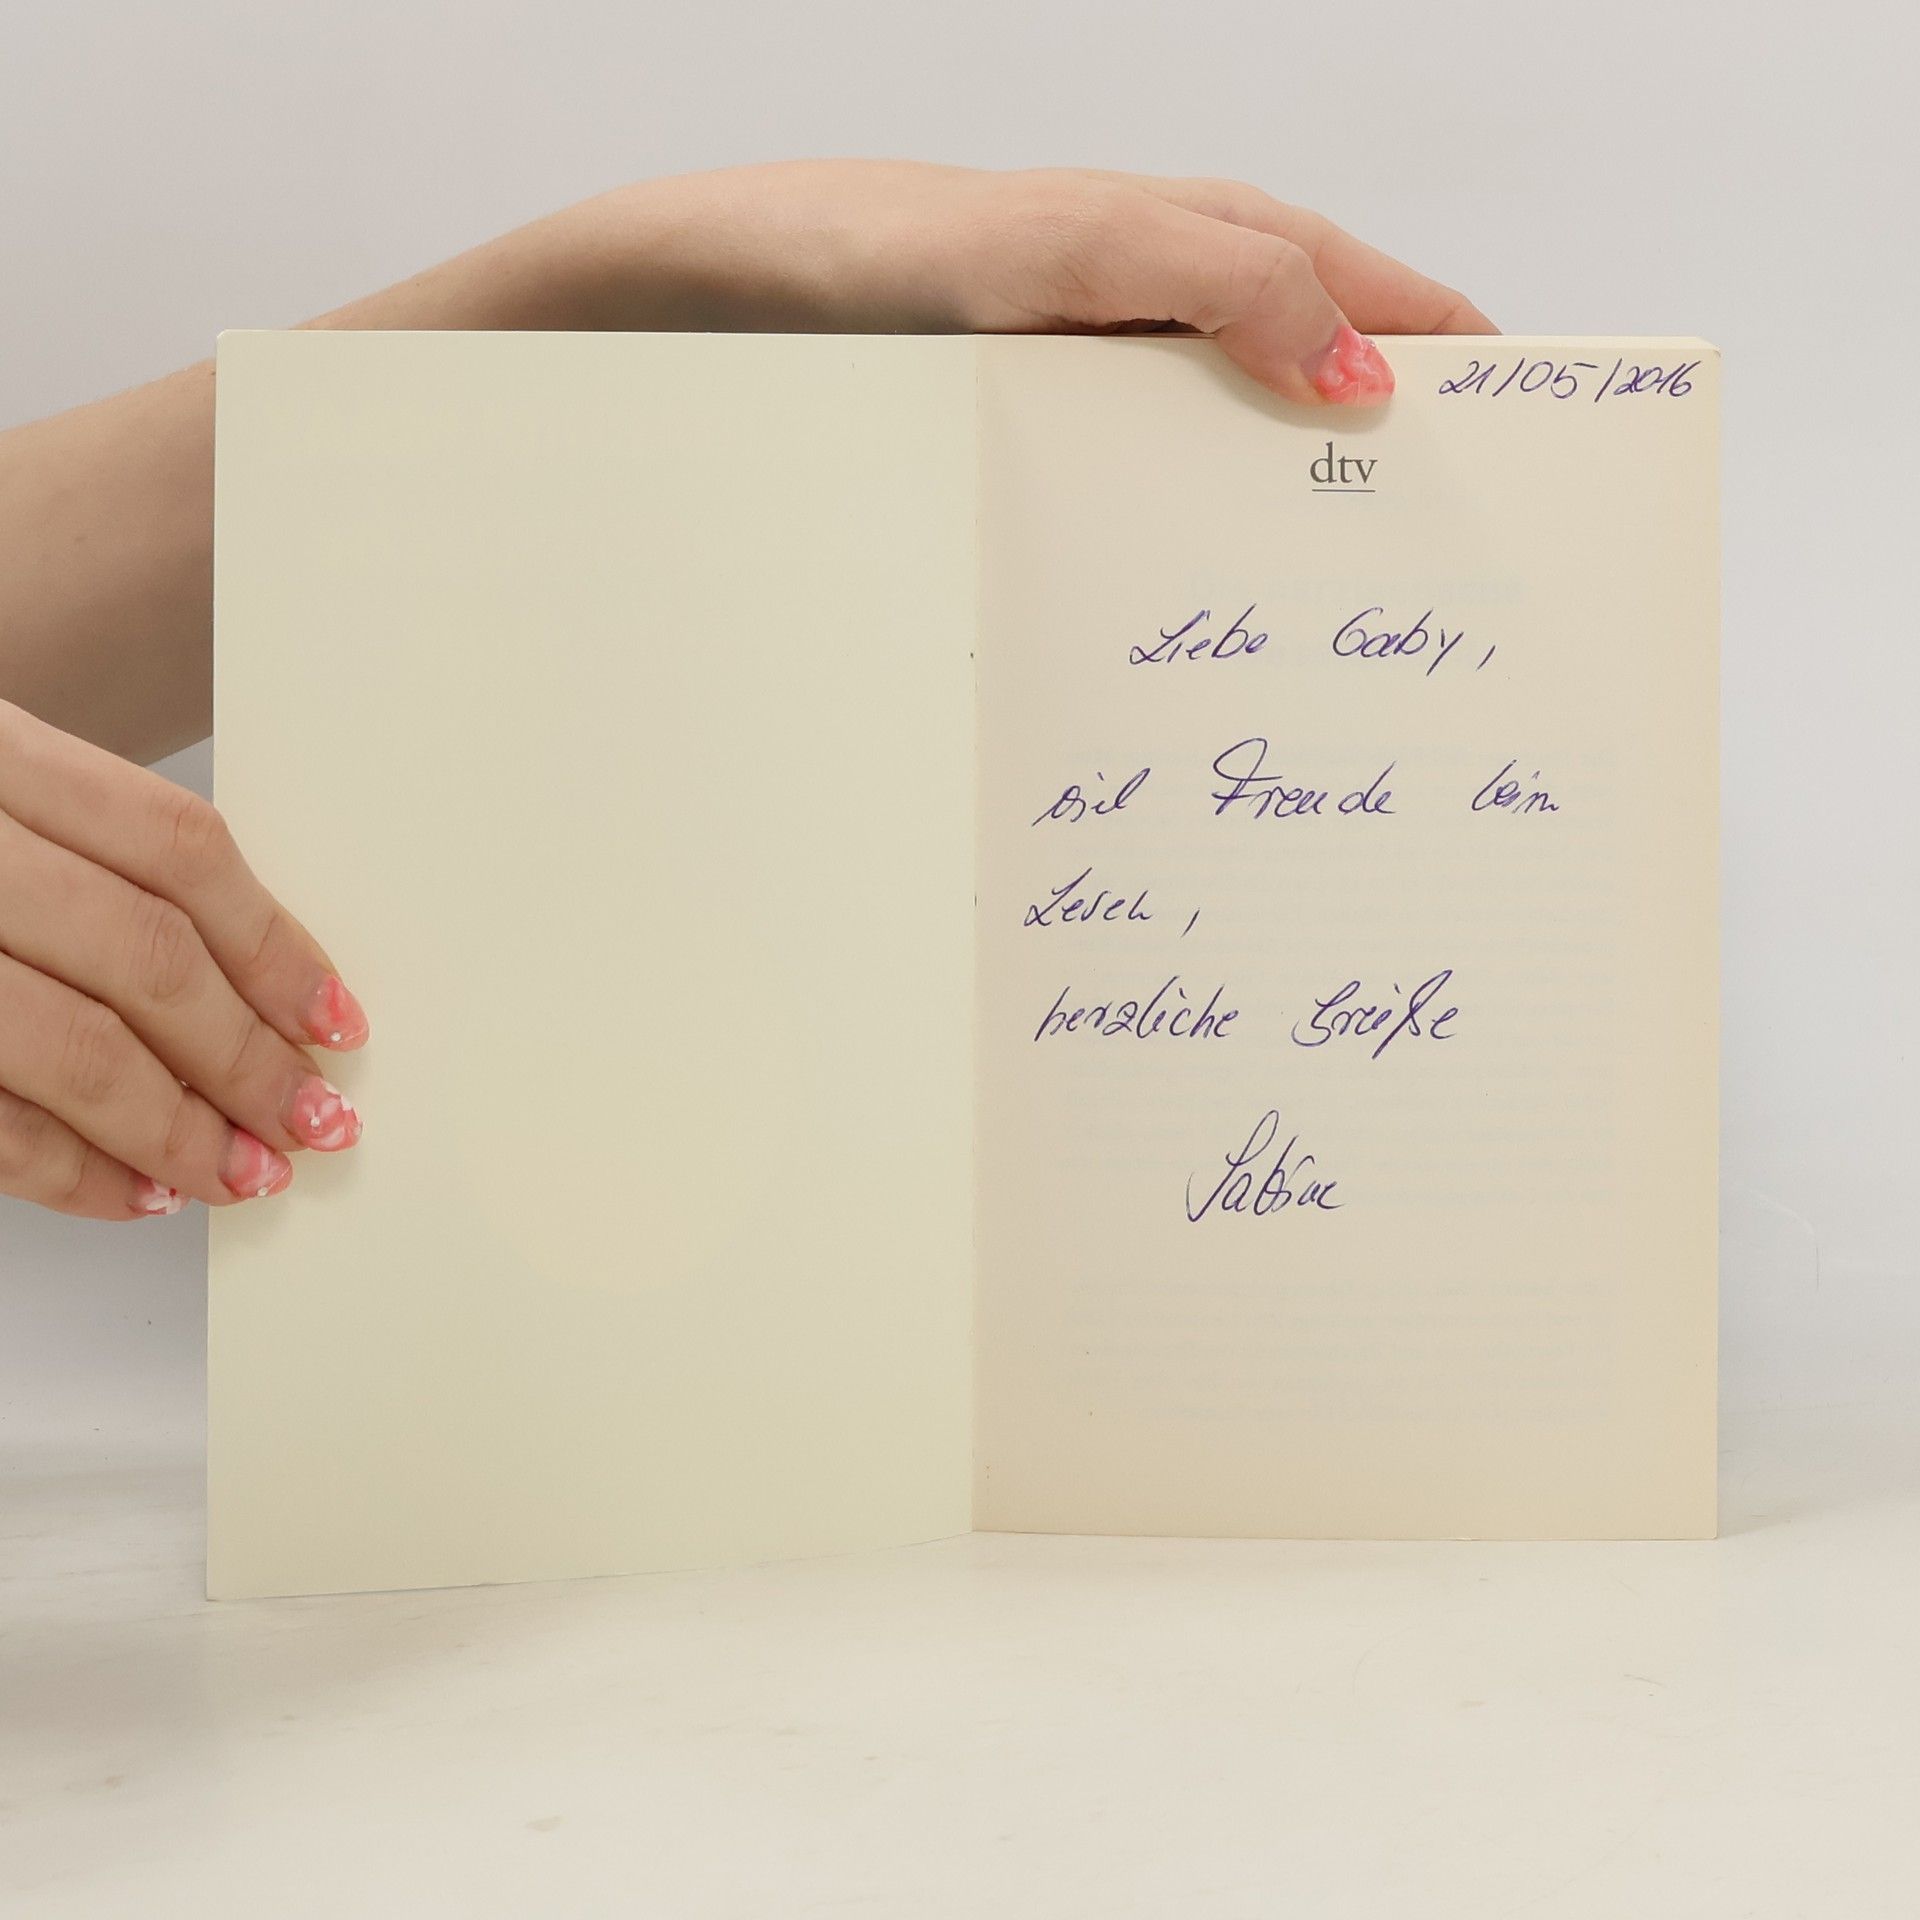 21/05/2016
dtv
Liebe Gaby,
viel Freude beim
Lesen,
herzliche Grüße
Sabine